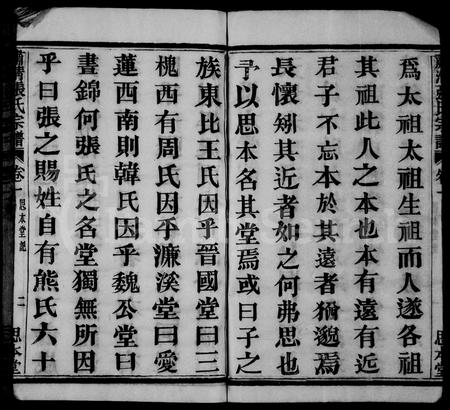 為太祖太祖生祖而人遂各祖
其祖此人之本也本有遠有近
君子不忘本於其遠者猶邈焉
長懷矧其近者如之何弗思也
予以思本名其堂焉或曰子之
族東比王氏因乎晉國堂曰三
槐西有周氏因乎濂溪堂曰愛
蓮西南則韓氏因乎魏公堂曰
晝錦何張氏之名堂獨無所因
乎曰張之賜姓自有熊氏六十
蕭清張氏宗譜 卷一 思本堂說 二 思本堂